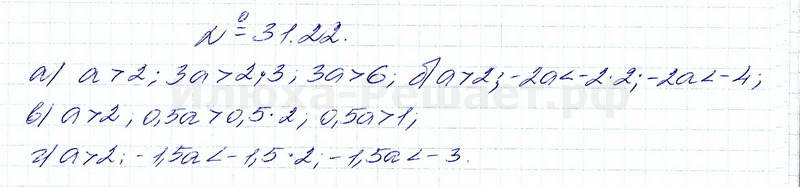 № 31.22.
а) a>2; 3a>2·3; 3a>6; б) a>2; -2a<-2·2; -2a<-4;
илюха-решает.рф
в) a>2; 0,5a>0,5·2; 0,5a>1;
г) a>2; -1,5a<-1,5·2; -1,5a<-3.